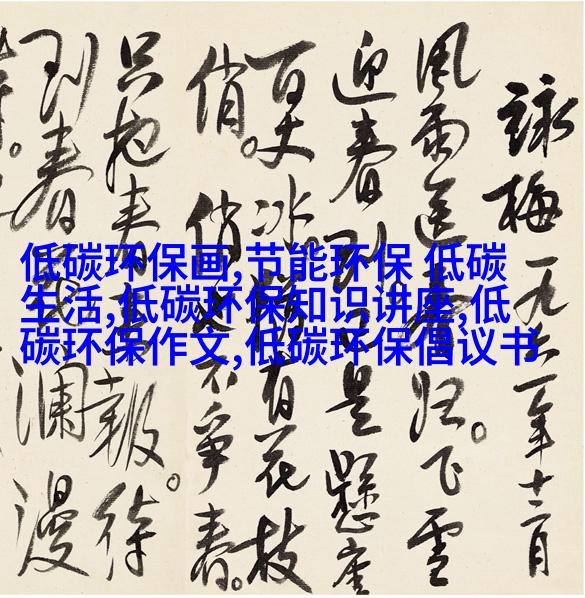 低碳环保画,节能环保 低碳
生活,低碳环保知识讲座,低
碳环保作文,低碳环保倡议书
詠梅一九六一年十二月
風雨送春归。飞雪
迎春到已是懸崖
百丈冰有花枝
俏。俏也不爭春。
只把春来報。待
到春瀾漫